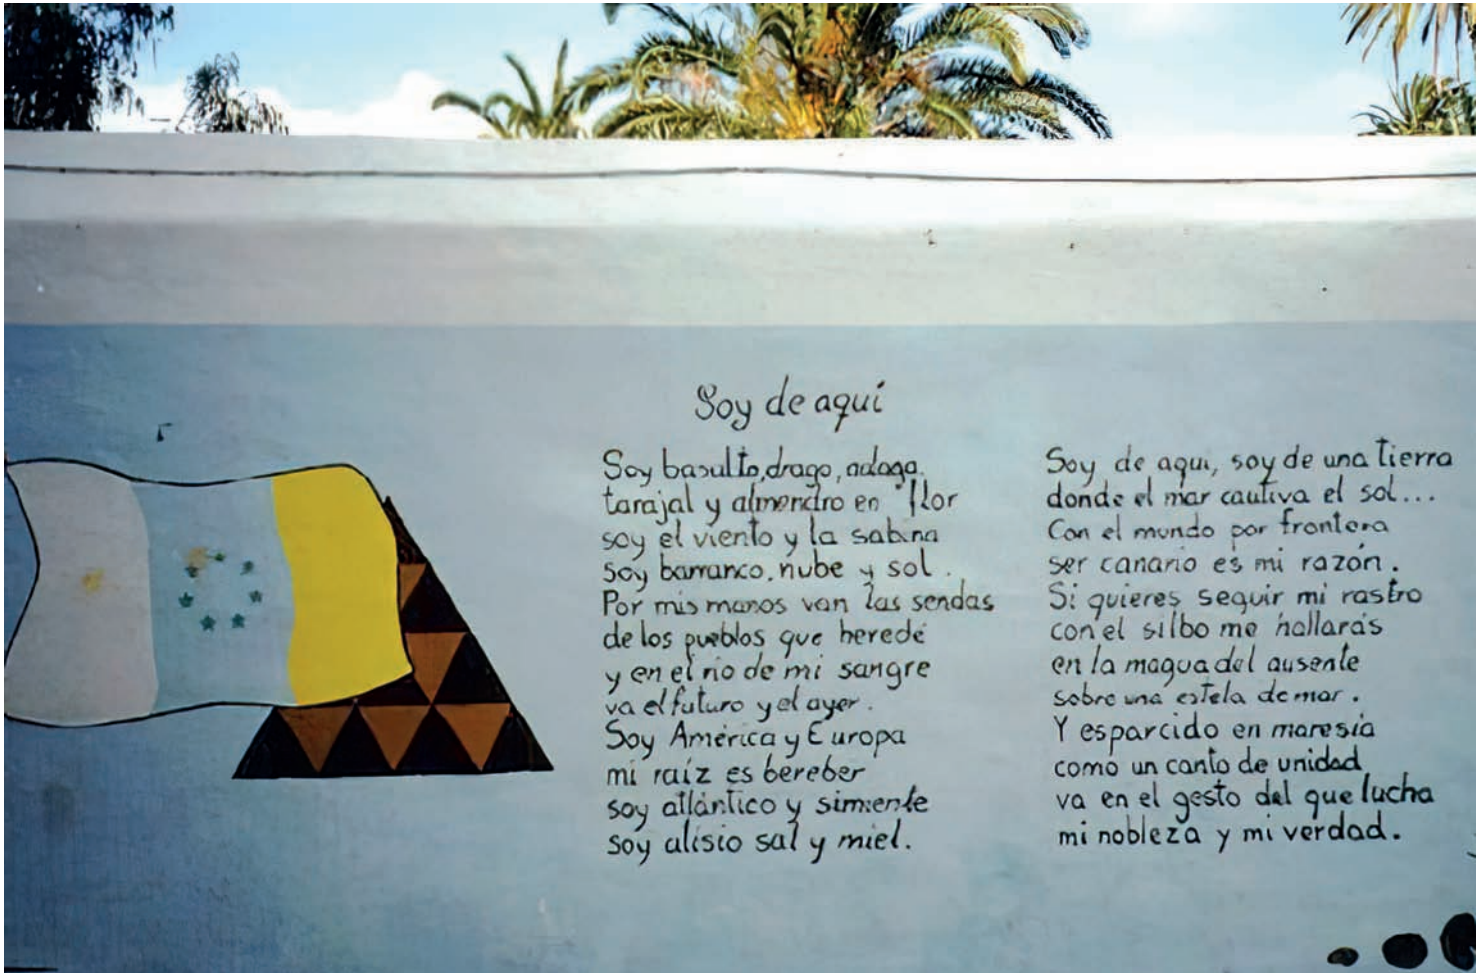 Soy de aquí
Soy basulto, drago, adaga,
tarajal y almendro en flor
soy el viento y la sabina
Soy barranco, nube y sol.
Por mis manos van las sendas
de los pueblos que heredé
y en el río de mi sangre
va el futuro y el ayer.
Soy América y Europa
mi raíz es bereber
soy atlántico y simiente
soy alisio sal y miel.
Soy de aquí, soy de una tierra
donde el mar cautiva el sol...
Con el mundo por frontera
ser canario es mi razón.
Si quieres seguir mi rastro
con el silbo me hallarás
en la magua del ausente
sobre una estela de mar.
Y esparcido en maresía
como un canto de unidad
va en el gesto del que lucha
mi nobleza y mi verdad.